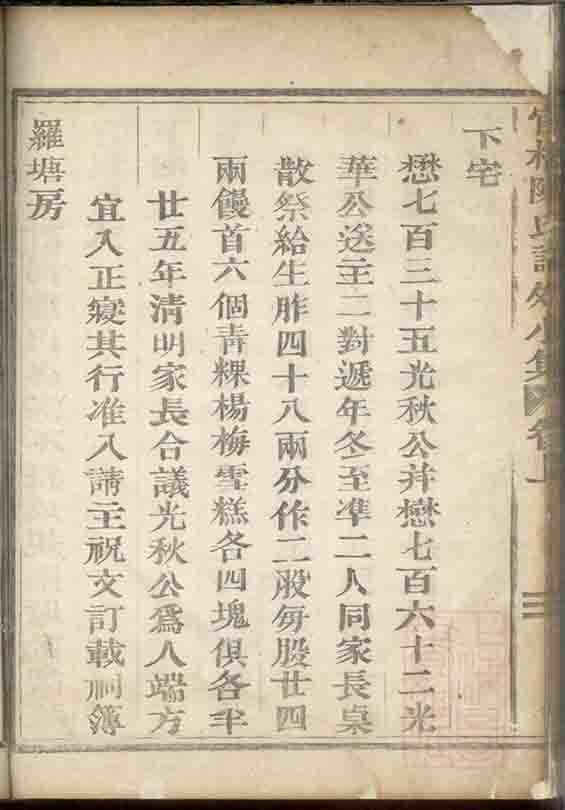 陳氏譜外小集 卷上
下宅
懋七百三十五光秋公并懋七百六十二光
華公送主二對遞年冬至準二人同家長桌
散祭給生胙四十八兩分作二股每股廿四
兩饅首六個青粿楊梅雪糕各四塊俱各半
廿五年清明家長合議光秋公爲人端方
宜入正寢其行准入請主祝文訂載祠簿
羅塘房